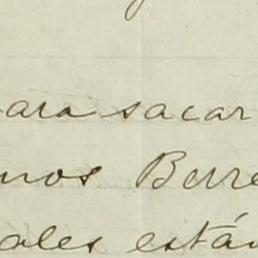 ara sacar
nos Berre
ales están